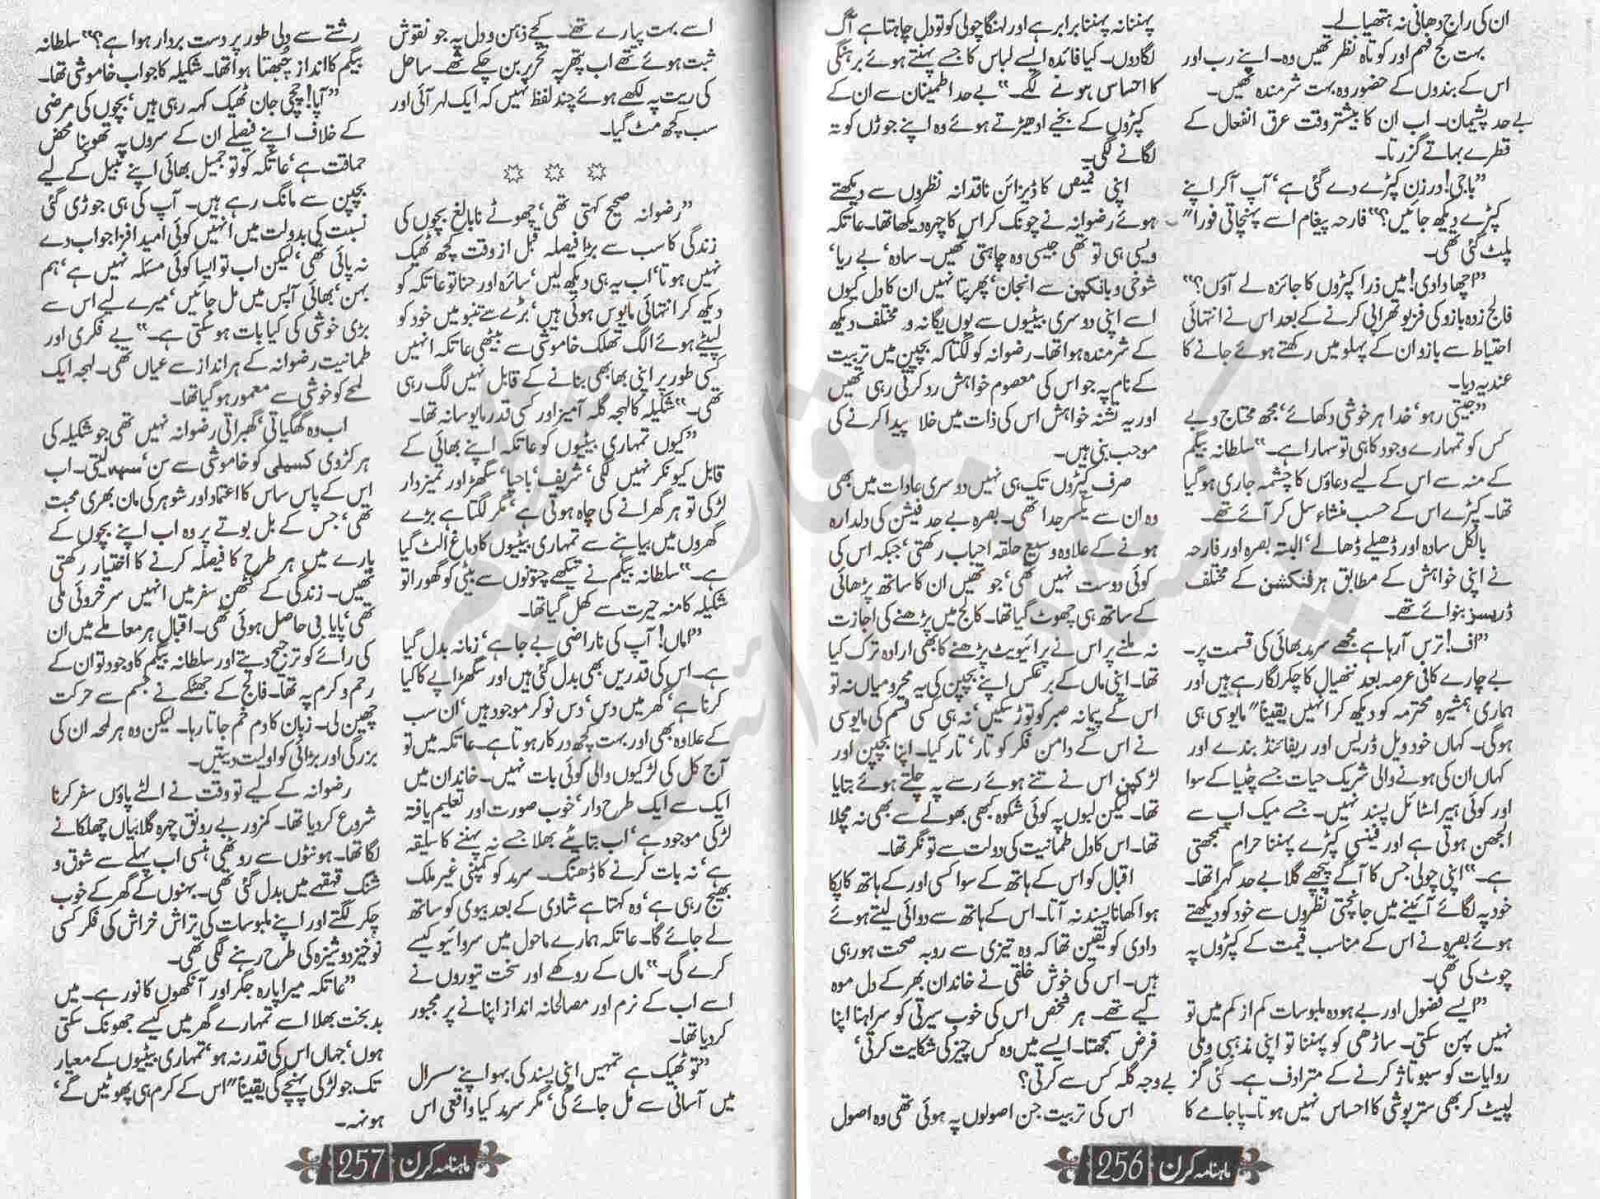 ان کی راج دھانی نہ ہتھیا لے۔
بہت کج فہم اور کوتاہ نظر تھیں وہ۔ اپنے رب اور
اس کے بندوں کے حضور وہ بہت شرمندہ تھیں۔
بے حد پشیمان۔ اب ان کا بیشتر وقت عرق انفعال کے
قطرے بہاتے گزرتا۔
"باجی! درزن کپڑے دے گئی ہے، آپ آکر اپنے
کپڑے دیکھ جائیں؟" فارحہ پیغام اسے پہنچاتی فورا"
پلٹ گئی تھی۔
"اچھا دادی! میں ذرا کپڑوں کا جائزہ لے آؤں؟"
فالج زدہ بازو کی فزیو تھراپی کرنے کے بعد اس نے انتہائی
احتیاط سے بازو ان کے پہلو میں رکھتے ہوئے جانے کا
عندیہ دیا۔
"جیتی رہو، خدا ہر خوشی دکھائے، مجھ محتاج و بے
کس کو تمہارے وجود کا ہی تو سہارا ہے۔" سلطانہ بیگم
کے منہ سے اس کے لیے دعاؤں کا چشمہ جاری ہو گیا
تھا۔ کپڑے اس کے حسب منشاء سل کر آئے تھے۔
بالکل سادہ اور ڈھیلے ڈھالے، البتہ بصرہ اور فارحہ
نے اپنی خواہش کے مطابق ہر فنکشن کے مختلف
ڈریسز بنوائے تھے۔
"اف! ترس آرہا ہے مجھے سرمد بھائی کی قسمت پر۔
بے چارے کافی عرصہ بعد ننھیال کا چکر لگا رہے ہیں اور
ہماری ہمشیرہ محترمہ کو دیکھ کر انہیں یقینا" مایوسی ہی
ہوگی۔ کہاں خود ویل ڈریس اور ریفائنڈ بندے اور
کہاں ان کی ہونے والی شریک حیات جسے چٹیا کے سوا
اور کوئی ہیر اسٹائل پسند نہیں۔ جسے میک اپ سے
الجھن ہوتی ہے اور فینسی کپڑے پہننا حرام سمجھتی
ہے۔" اپنی چولی جس کا آگے پیچھے گلا بے حد گہرا تھا۔
خود پہ لگائے آئینے میں جانچتی نظروں سے خود کو دیکھتے
ہوئے بصرہ نے اس کے مناسب قیمت کے کپڑوں پہ
چوٹ کی تھی۔
"ایسے فضول اور بے ہودہ ملبوسات کم از کم میں تو
نہیں پہن سکتی۔ ساڑھی کو پہننا تو اپنی مذہبی و ملی
روایات کو سبوتاژ کرنے کے مترادف ہے۔ کئی گز
لپیٹ کر بھی ستر پوشی کا احساس نہیں ہوتا۔ پاجامے کا
پہننا نہ پہننا برابر ہے اور لہنگا چولی کو تو دل چاہتا ہے آگ
لگا دوں۔ کیا فائدہ ایسے لباس کا جسے پہنتے ہوئے برہنگی
کا احساس ہونے لگے۔" بے حد اطمینان سے ان کے
کپڑوں کے بخیے ادھیڑتے ہوئے وہ اپنے جوڑں کو تہ
لگانے لگی۔
اپنی قمیص کا ڈیزائن ناقدانہ نظروں سے دیکھتے
ہوئے رضوانہ نے چونک کر اس کا چہرہ دیکھا تھا۔ عاتکہ
ویسی ہی تو تھی جیسی وہ چاہتی تھیں۔ سادہ، بے ریا،
شوخی و بانکپن سے انجان، پھر پتا نہیں ان کا دل کیوں
اسے اپنی دوسری بیٹیوں سے یوں یگانہ و مختلف دیکھ
کے شرمندہ ہوا تھا۔ رضوانہ کو لگتا کہ بچپن میں تربیت
کے نام پہ جو اس کی معصوم خواہش رد کرتی رہی تھیں
اور یہ تشنہ خواہش اس کی ذات میں خلا پیدا کرنے کی
موجب بنی ہیں۔
صرف کپڑوں تک ہی نہیں دوسری عادات میں بھی
وہ ان سے یکسر جدا تھی۔ بصرہ بے حد فیشن کی دلدارہ
ہونے کے علاوہ وسیع حلقہ احباب رکھتی، جبکہ اس کی
کوئی دوست نہیں تھی، جو تھیں ان کا ساتھ پڑھائی
کے ساتھ ہی چھوٹ گیا تھا۔ کالج میں پڑھنے کی اجازت
نہ ملنے پر اس نے پرائیویٹ پڑھنے کا بھی ارادہ ترک کیا
تھا۔ اپنی ماں کے برعکس اپنے بچپن کی یہ محرومیاں نہ تو
اس کے پیمانہ صبر کو توڑ سکیں، نہ ہی کسی قسم کی مایوسی
نے اس کے دامن فکر کو تار، تار کیا۔ اپنا بچپن اور
لڑکپن اس نے تنے ہوئے رسے پہ چلتے ہوئے بتایا
تھا۔ لیکن لبوں پہ کوئی شکوہ کبھی بھولے سے بھی نہ مچلا
تھا۔ اس کا دل طمانیت کی دولت سے تونگر تھا۔
اقبال کو اس کے ہاتھ کے سوا کسی اور کے ہاتھ کا پکا
ہوا کھانا پسند نہ آتا۔ اس کے ہاتھ سے دوائی لیتے ہوئے
دادی کو یقین تھا کہ وہ تیزی سے رو بہ صحت ہو رہی
ہیں۔ اس کی خوش خلقی نے خاندان بھر کے دل موہ
لیے تھے۔ ہر شخص اس کی خوب سیرتی کو سراہنا اپنا
فرض سمجھتا۔ ایسے میں وہ کس چیز کی شکایت کرتی،
بے وجہ گلہ کس سے کرتی؟
اس کی تربیت جن اصولوں پہ ہوئی تھی وہ اصول
ماہنامہ کرن 256
اسے بہت پیارے تھے۔ کچے ذہن و دل پہ جو نقوش
ثبت ہوئے تھے اب پتھر پہ تحریر بن چکے تھے۔ ساحل
کی ریت پہ لکھے ہوئے چند لفظ نہیں کہ ایک لہر آئی اور
سب کچھ مٹ گیا۔
"رضوانہ صحیح کہتی تھی، چھوٹے نابالغ بچوں کی
زندگی کا سب سے بڑا فیصلہ قبل از وقت کچھ ٹھیک
نہیں ہوتا، اب یہ ہی دیکھ لیں، سائرہ اور حنا تو عاتکہ کو
دیکھ کر انتہائی مایوس ہوئی ہیں، بڑے سے تنبو میں خود کو
لپیٹے ہوئے الگ تھلگ خاموشی سے بیٹھی عاتکہ انہیں
کسی طور پر اپنی بھابھی بنانے کے قابل نہیں لگ رہی
تھی۔" شکیلہ کا لہجہ گلہ آمیز اور کسی قدر مایوسانہ تھا۔
"کیوں تمہاری بیٹیوں کو عاتکہ اپنے بھائی کے
قابل کیونکر نہیں لگی، شریف، باحیا، سگھڑ اور تمیزدار
لڑکی تو ہر گھرانے کی چاہ ہوتی ہے، مگر لگتا ہے بڑے
گھروں میں بیاہنے سے تمہاری بیٹیوں کا دماغ الٹ گیا
ہے۔" سلطانہ بیگم نے تیکھے چتونوں سے بیٹی کو گھورا تو
شکیلہ کا منہ حیرت سے کھل گیا تھا۔
"اماں! آپ کی ناراضی بے جا ہے، زمانہ بدل گیا
ہے۔ اس کی قدریں بھی بدل گئی ہیں اور سگھڑاپے کا کیا
کرنا ہے، گھر میں دس، دس نوکر موجود ہیں، ان سب
کے علاوہ بھی اور بہت کچھ درکار ہوتا ہے۔ عاتکہ میں تو
آج کل کی لڑکیوں والی کوئی بات نہیں۔ خاندان میں
ایک سے ایک طرح دار، خوب صورت اور تعلیم یافتہ
لڑکی موجود ہے، اب بتایئے بھلا جسے نہ پہننے کا سلیقہ
ہے، نہ بات کرنے کا ڈھنگ۔ سرمد کو کمپنی غیر ملک
بھیج رہی ہے، وہ کہتا ہے شادی کے بعد بیوی کو ساتھ
لے جائے گا۔ عاتکہ ہمارے ماحول میں سروائیو کیسے
کرے گی۔" ماں کے روکھے اور سخت تیوروں نے
اسے اب کے نرم اور مصالحانہ انداز اپنانے پر مجبور
کر دیا تھا۔
"تو ٹھیک ہے تمہیں اپنی پسند کی بہو اپنے سسرال
میں آسانی سے مل جائے گی، مگر سرمد کیا واقعی اس
رشتے سے دلی طور پر دست بردار ہوا ہے؟" سلطانہ
بیگم کا انداز چبھتا ہوا تھا۔ شکیلہ کا جواب خاموشی تھا۔
"آپا! چچی جان ٹھیک کہہ رہی ہیں، بچوں کی مرضی
کے خلاف اپنے فیصلے ان کے سروں پہ تھوپنا محض
حماقت ہے، عاتکہ کو تو جمیل بھائی اپنے نبیل کے لیے
بچپن سے مانگ رہے ہیں۔ آپ کی ہی جوڑی گئی
نسبت کی بدولت میں انہیں کوئی امید افزا جواب دے
نہ پائی تھی، لیکن اب تو ایسا کوئی مسئلہ نہیں ہے، ہم
بہن، بھائی آپس میں مل جائیں، میرے لیے اس سے
بڑی خوشی کی کیا بات ہو سکتی ہے۔" بے فکری اور
طمانیت رضوانہ کے ہر انداز سے عیاں تھی۔ لہجہ ایک
لمحے کو خوشی سے معمور ہو گیا تھا۔
اب وہ گھگیاتی، گھبراتی رضوانہ نہیں تھی جو شکیلہ کی
ہر کڑوی کسیلی کو خاموشی سے سن، سہہ لیتی۔ اب
اس کے پاس ساس کا اعتماد اور شوہر کی مان بھری محبت
تھی، جس کے بل بوتے پر وہ اب اپنے بچوں کے
بارے میں ہر طرح کا فیصلہ کرنے کا اختیار رکھتی
تھیں۔ زندگی کے کٹھن سفر میں انہیں سرخروئی ملی
تھی، پایا بی حاصل ہوئی تھی۔ اقبال ہر معاملے میں ان
کی رائے کو ترجیح دیتے اور سلطانہ بیگم کا وجود تو ان کے
رحم و کرم پہ تھا۔ فالج کے جھٹکے نے جسم سے حرکت
چھین لی۔ زبان کا دم خم جاتا رہا۔ لیکن وہ ہر لمحہ ان کی
بزرگی اور بڑائی کو اولیت دیتیں۔
رضوانہ کے لیے تو وقت نے الٹے پاؤں سفر کرنا
شروع کر دیا تھا۔ کمزور بے رونق چہرہ گلابیاں چھلکانے
لگا تھا۔ ہونٹوں سے روٹھی ہنسی اب پہلے سے شوق و
شنگ قہقہے میں بدل گئی تھی۔ بہنوں کے گھر کے خوب
چکر لگتے اور اپنے ملبوسات کی تراش خراش کی فکر کسی
نوخیز دوشیزہ کی طرح رہنے لگی تھی۔
"عاتکہ میرا پارہ جگر اور آنکھوں کا نور ہے۔ میں
بدبخت بھلا اسے تمہارے گھر میں کیسے جھونک سکتی
ہوں، جہاں اس کی قدر نہ ہو، تمہاری بیٹیوں کے معیار
تک جو لڑکی پہنچے گی یقینا" اس کے کرم ہی پھوٹیں گے،
ہونہہ۔
ماہنامہ کرن 257